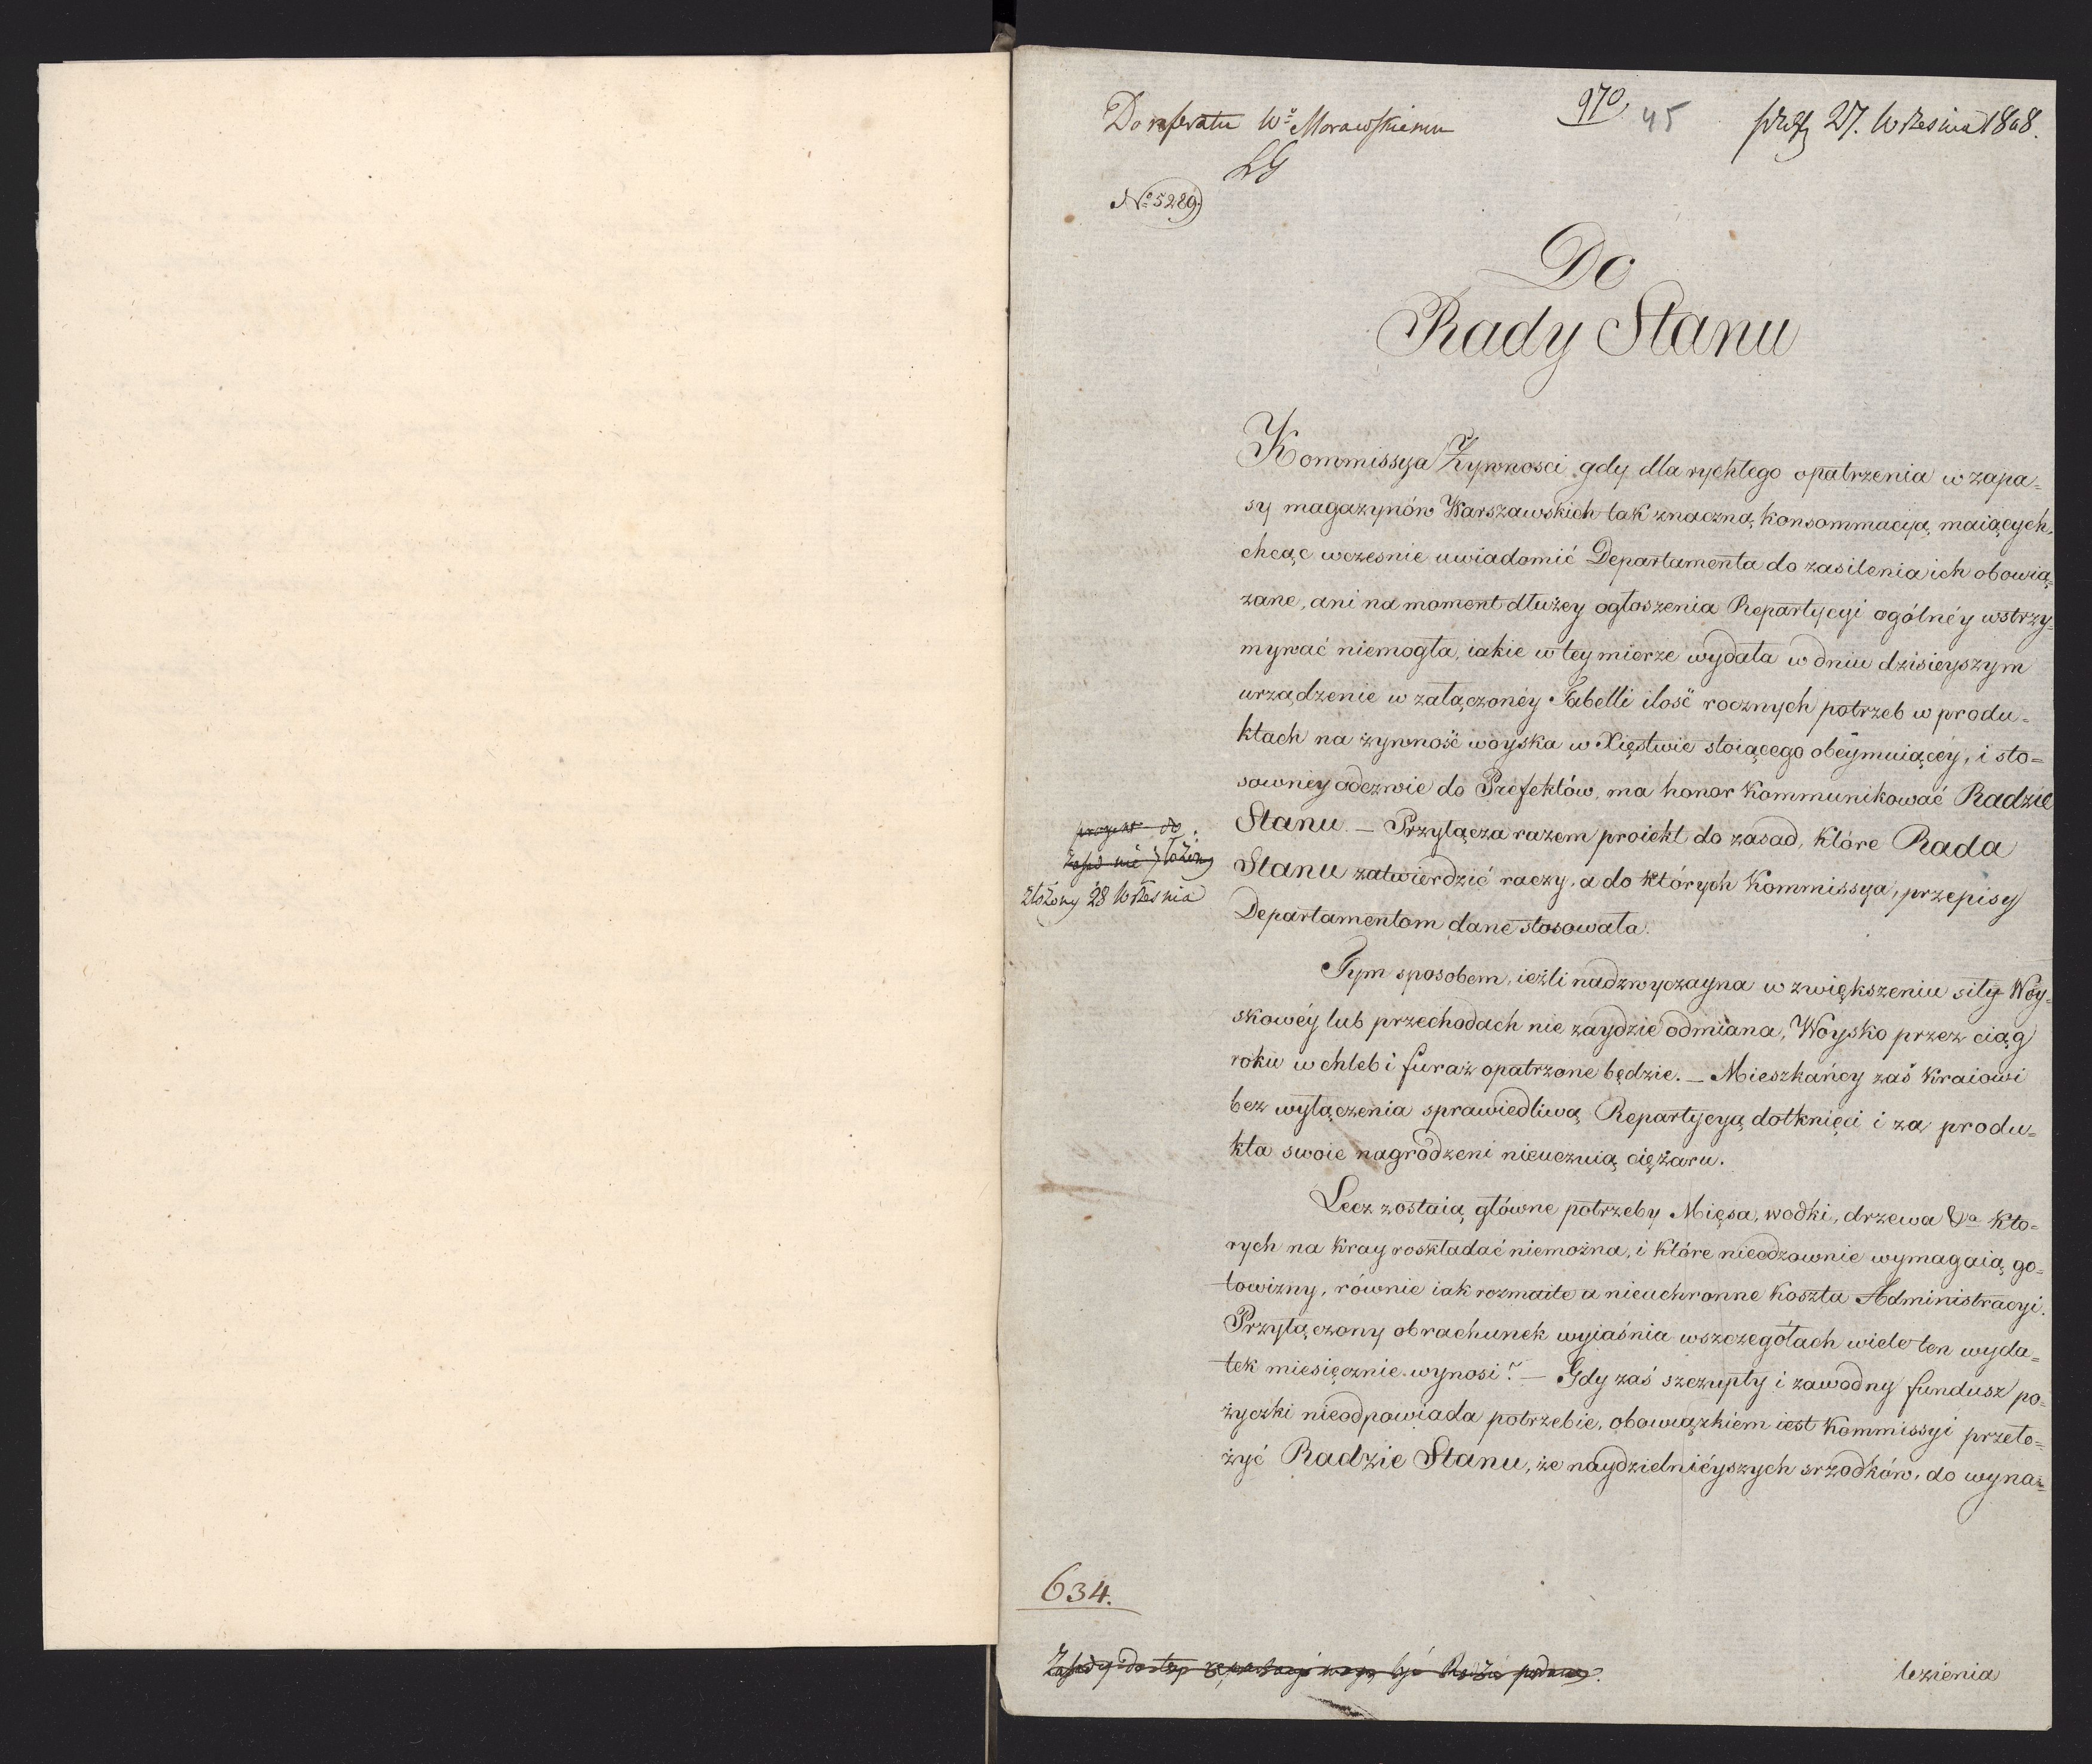 Do referatu W° Morawskiemu
970.
45
prez 27. Września 1808.
LG
No 5289.
Do
Rady Stanu
Kommissya Zywnosci gdy dla rychłego opatrzenia w zapa=
sy magazynów Warszawskich tak znaczną konsommacyą maiących,
chcąc wczesnie uwiadomić Departamenta do zasilenia ich obowią=
zane, ani na moment dłużey ogłoszenia Repartycyi ogólnéy wstrzy=
mywać niemogła, iakie w tey mierze wydała w dniu dzisieyszym
urządzenie w załączonéy Tabelli ilość rocznych potrzeb w produ=
ktach na żywność woyska w Xięstwie stoiącego obéymuiącéy, i sto=
sownéy odezwie do Prefektów, ma honor kommunikować Radzie
Stanu. — Przyłącza razem proiekt do zasad, które Rada
Stanu zatwierdzić raczy, a do których Kommissya, przepisy
Departamentom dane stosowała.
projekt do
zasad nie złożony
złożony 28 Września
Tym sposobem, ieżli nadzwyczayna w zwiększeniu siły Woy=
skowéy lub przechodach nie zaydzie odmiana, Woysko przez ciąg
roku w chleb i furaż opatrzone będzie. — Mieszkańcy zaś kraiowi
bez wyłączenia sprawiedliwą Repartycyą dotknięci i za produ=
kta swoie nagrodzeni nieuczuią ciężaru.
Lecz zostaią główne potrzeby Mięsa, wodki, drzewa &a kto=
rych na kray roskładać niemożna, i które nieodzownie wymagaią go=
towizny, równie iak rozmaite a nieuchronne koszta Administracyi.
Przyłączony obrachunek wyiaśnia w szczegółach wiele ten wyda=
tek miesięcznie wynosi? — Gdy zaś szczupły i zawodny fundusz po=
życzki nieodpowiada potrzebie, obowiązkiem iest Kommissyi przeło=
żyć Radzie Stanu, że naydzielniéyszych srzodków, do wyna=
634.
Zasady do tey repartycyi maią być Radzie podane.
lezienia